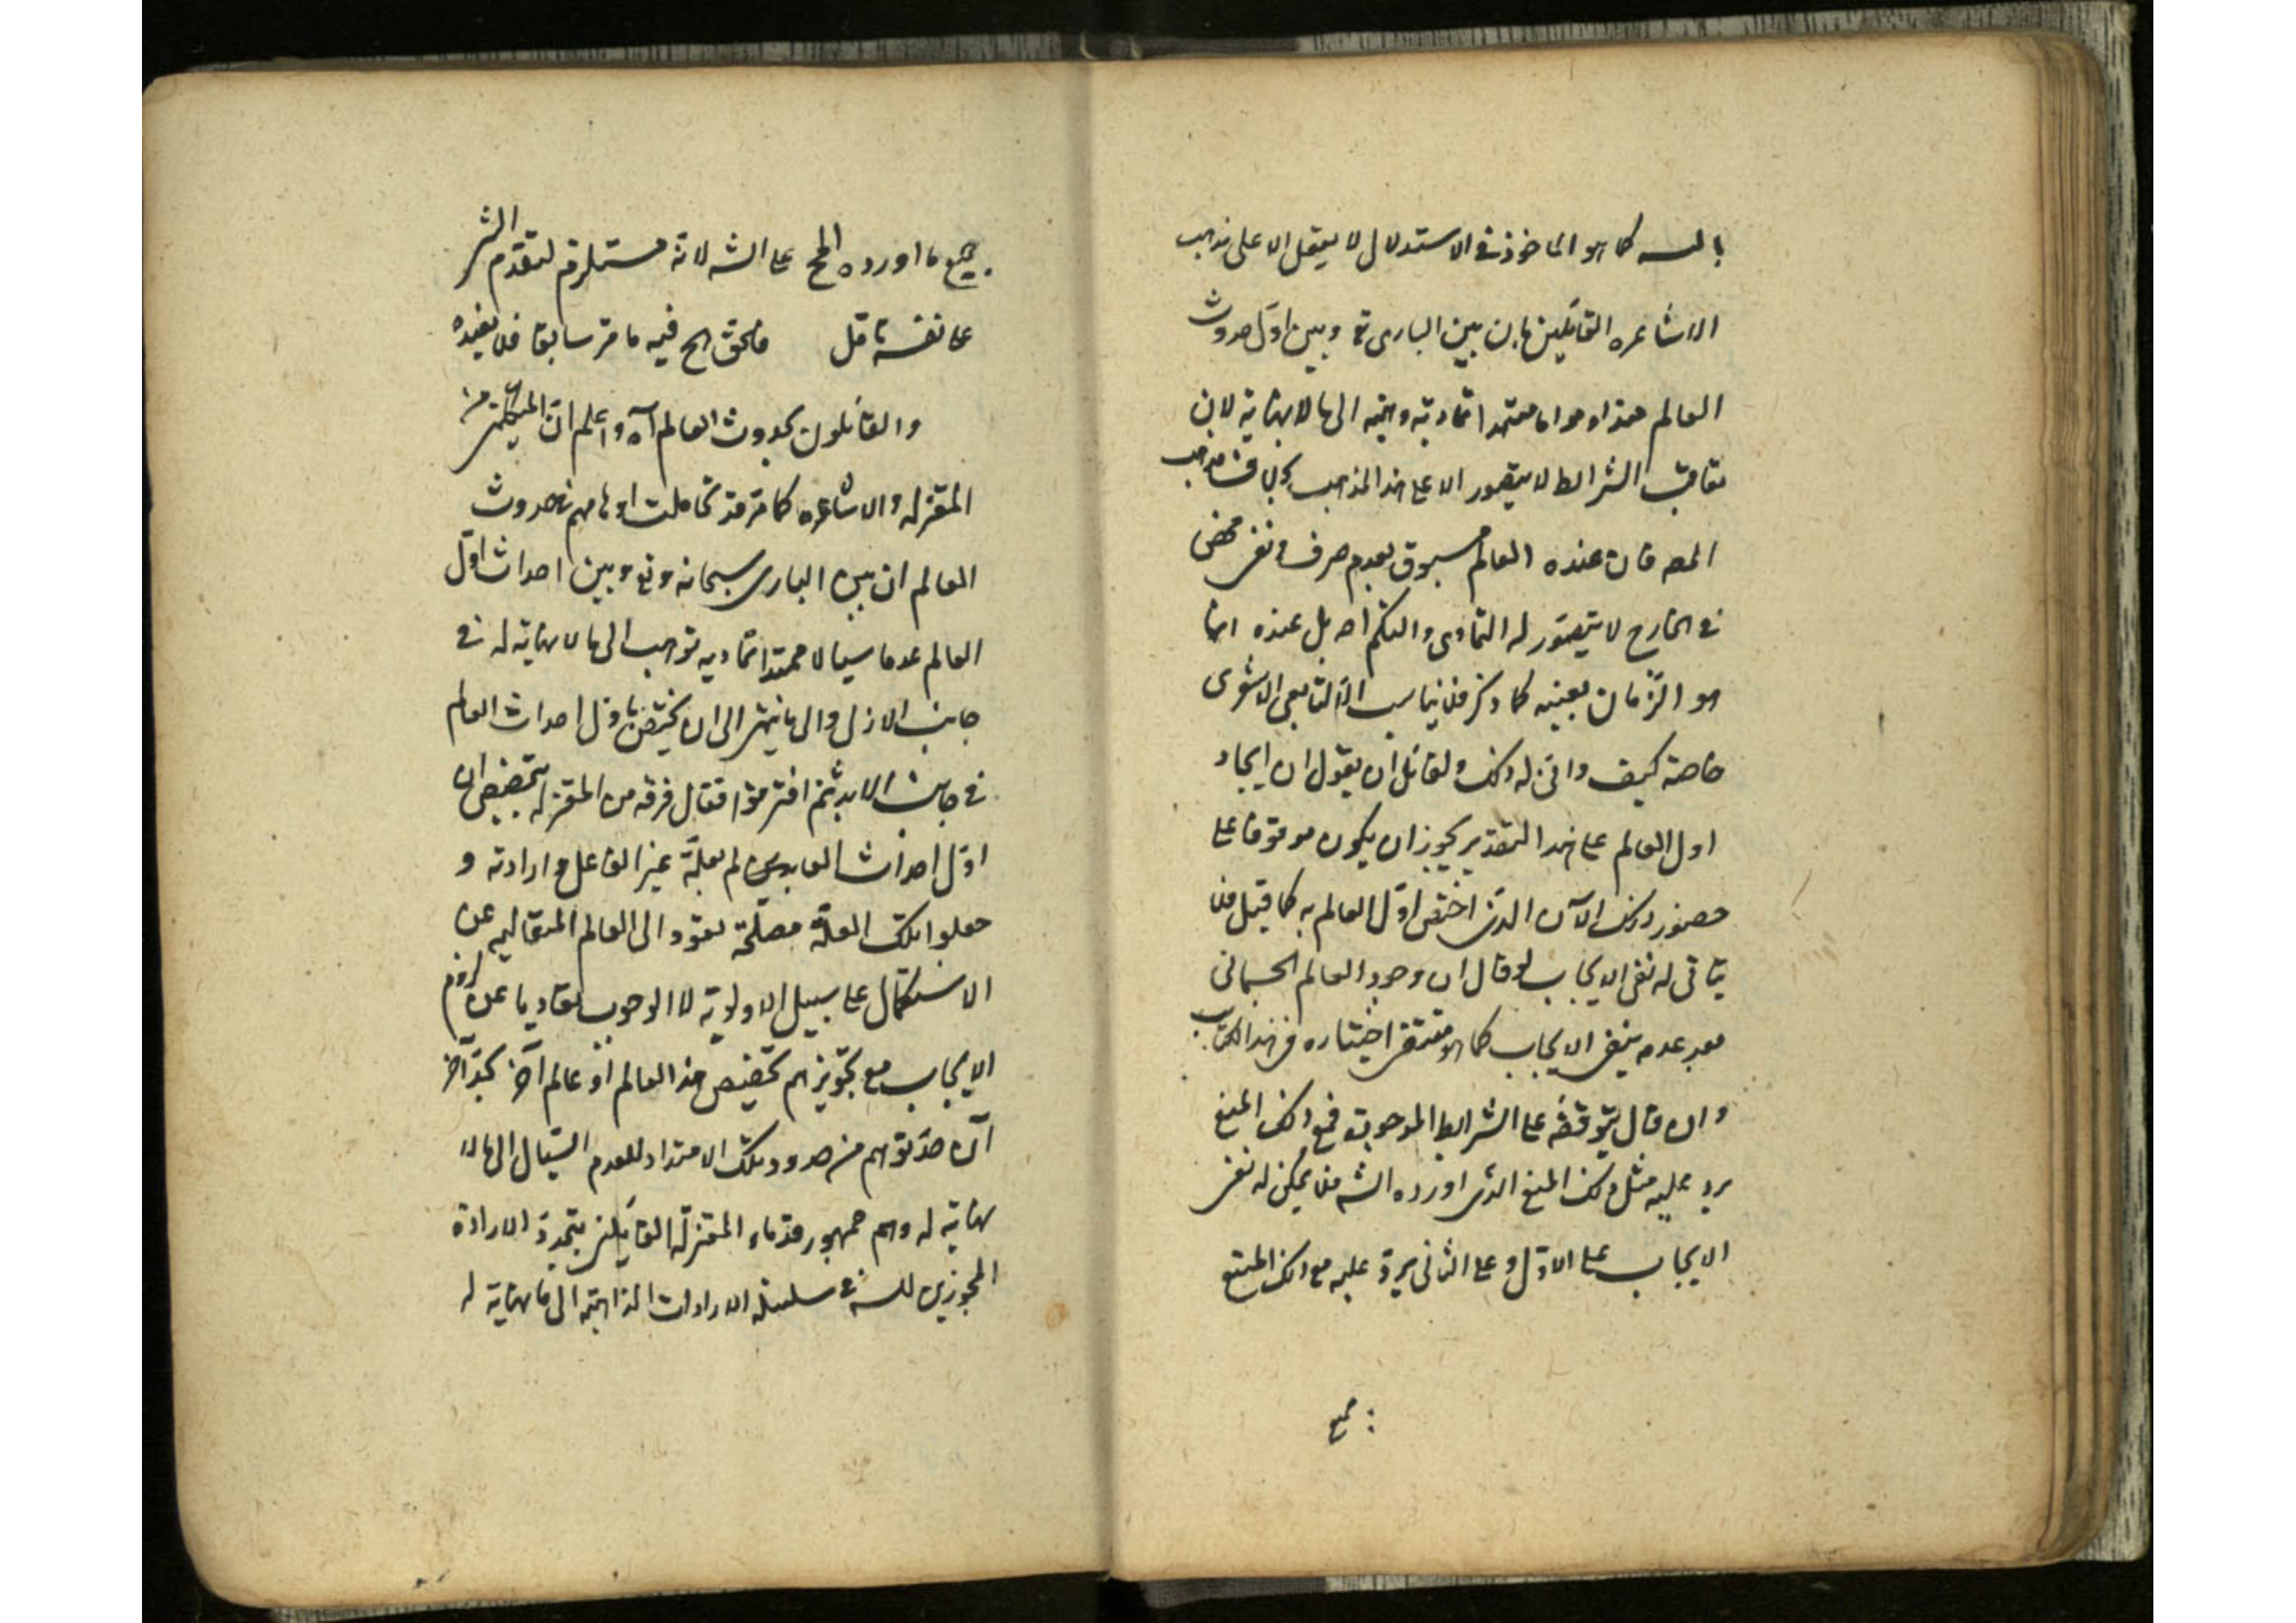 بالـسـه كما هو الماخوذ في الاستدلال لا يعقل الا على مذهب
الاشاعره القائلين بان بين البارى تع وبين اول حدوث
العالم عدما موهوما ممتدا تماديه وهميه الى ما لا نهاية لان
تعاقب الشرائط لا يتصور الا على هذا المذهب بخلاف مذهب
المص فان عنده العالم مسبوق بعدم صرف ونفى محض
في الخارج لا يتصور له التمادى والتكمم اصه بل عنده انما
هو الزمان بعينه كما ذكر فلا يناسب الا لتابعى الاشعرى
خاصة كيف وانى له ذلك ولقائل ان يقول ان ايجاد
اول العالم على هذا التقدير يجوز ان يكون موقوفا على
حضور ذلك الآن الذى اختص اول العالم به كما قيل فلا
يتاتى له نفى الايجاب لو قال ان وجود العالم الجسمانى
بعد عدمه ينفى الايجاب كما هو مقتضى اختياره في هذا الكتاب
وان قال بتوقفه على الشرايط الموجوبة فمع ذلك المنع
يرد عليه مثل ذلك المنع الذى اورده الشه فلا يمكن له نفى
الايجاب على الاول وعلى الثانى يرد عليه مع ذلك المنع
جميع
جميع ما اورده المح على الشه لانه مستلزم لتقدم الشئ
على نفسه تامل فالحق الح فيه ما مر سابقا فلا نعيده
والقائلون بحدوث العالم آه واعلم ان المتكلمين من
المعتزله والاشاعره كما مر قد تحاملت اوهامهم في حدوث
العالم ان بين البارى سبحانه وتع وبين احداث اول
العالم عدما سيالا ممتدا تماديه تواهب الى ما لا نهاية له في
جانب الازل والى ما ينتهى الى ان يختص باول احداث العالم
في جانب الابد ثم افترقوا فقال فرقه من المعتزله بتخصيص ان
اول احداث العالم بعلة غير الفاعل وارادته و
جعلوا تلك العلة مصلحة تعود الى العالم المتعاليه عن
الاستكمال على سبيل الاولوية لا الوجوب تفاديا عن لزوم
الايجاب مع تجويزهم تخصيص هذا العالم او عالم آخر بحد آخر
آن حد توهم من حدود ذلك الامتداد للعدم السيال الى ما لا
نهاية له وهم جمهور قدماء المعتزلة القائلين بتجدد الارادة
المجوزين للسـه في سلسلة الارادات الذاهبة الى ما لا نهاية له